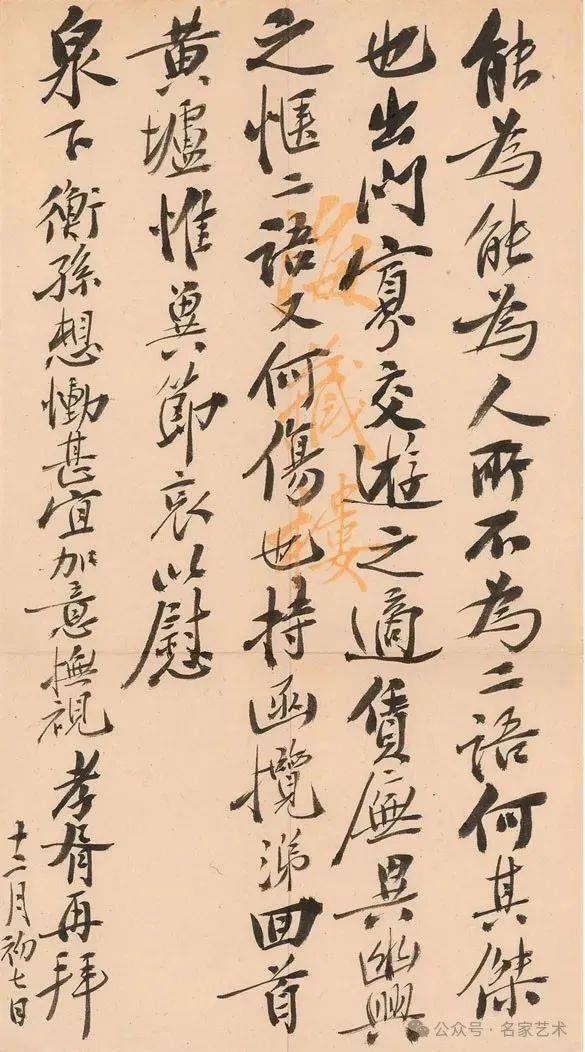 能為能為人所不為二語何其傑
也出門寡交遊之適賃廡異幽興
之愜二語又何傷也持函攬涕回首
黃壚惟冀節哀以慰
泉下衡孫想慟甚宜加意撫視 孝胥再拜
十二月初七日
海藏樓
公众号·名家艺术